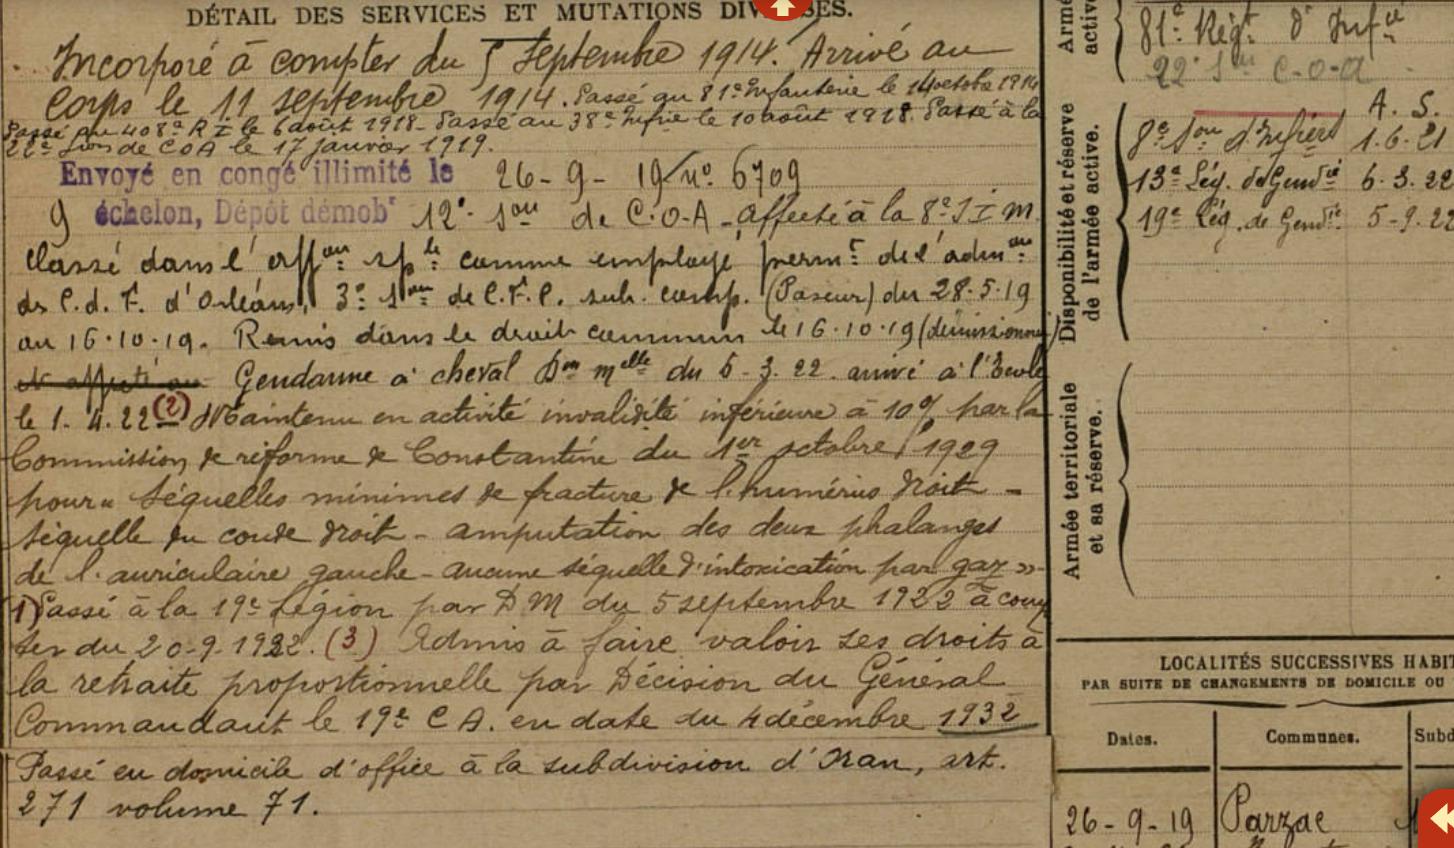 DÉTAIL DES SERVICES ET MUTATIONS DIVERSES.
Incorporé à compter du 5 Septembre 1914. Arrivé au
Corps le 11 septembre 1914. Passé au 81e Infanterie le 14 octobre 1914
Passé au 408e R I le 6 août 1918 - Passé au 38e Infrie le 10 août 1918. Passé à la
22e Son de COA le 17 janvier 1919.
Envoyé en congé illimité le 26-9-19 No. 6709
9 échelon, Dépôt démobr 12e Son de C.O.A - affecté à la 8e S I M.
Classé dans l'affon sple comme employé permt de l'admon
des C.d.F. d'Orléans, 3e Son de C.F.C. sub. comp. (Paseur) du 28.5.19
au 16.10.19. Remis dans le droit commun le 16.10.19 (démissionnaire)
et affecté au Gendarme à cheval Don melle du 6-3.22 arrivé à l'Ecole
le 1.4.22 (2) Maintenu en activité invalidité inférieure à 10% par la
Commission de réforme de Constantine du 1er octobre 1929
pour « Séquelles minimes de fracture de l'humérus droit -
séquelle du coude droit - amputation des deux phalanges
de l'auriculaire gauche - aucune séquelle d'intoxication par gaz » -
1) Passé à la 19e Légion par D M du 5 septembre 1922 à comp
ter du 20-9-1922. (3) Admis à faire valoir ses droits à
la retraite proportionnelle par Décision du Général
Commandant le 19e C A. en date du 4 décembre 1932
Passé en domicile d'office à la subdivision d'Oran, art.
271 volume 71.
Armé
active
81e Régt d'Infie
22e Son C-O-A
Disponibilité et réserve
de l'armée active.
A. S.
8e Son d'Infiers 1.6.21
13e Lég. de Gendie 6.3.22
19e Lég. de Gendie 5-9.22
Armée territoriale
et sa réserve.
LOCALITÉS SUCCESSIVES HABIT
PAR SUITE DE CHANGEMENTS DE DOMICILE OU
Dates. Communes. Subd
26-9-19 Parzac